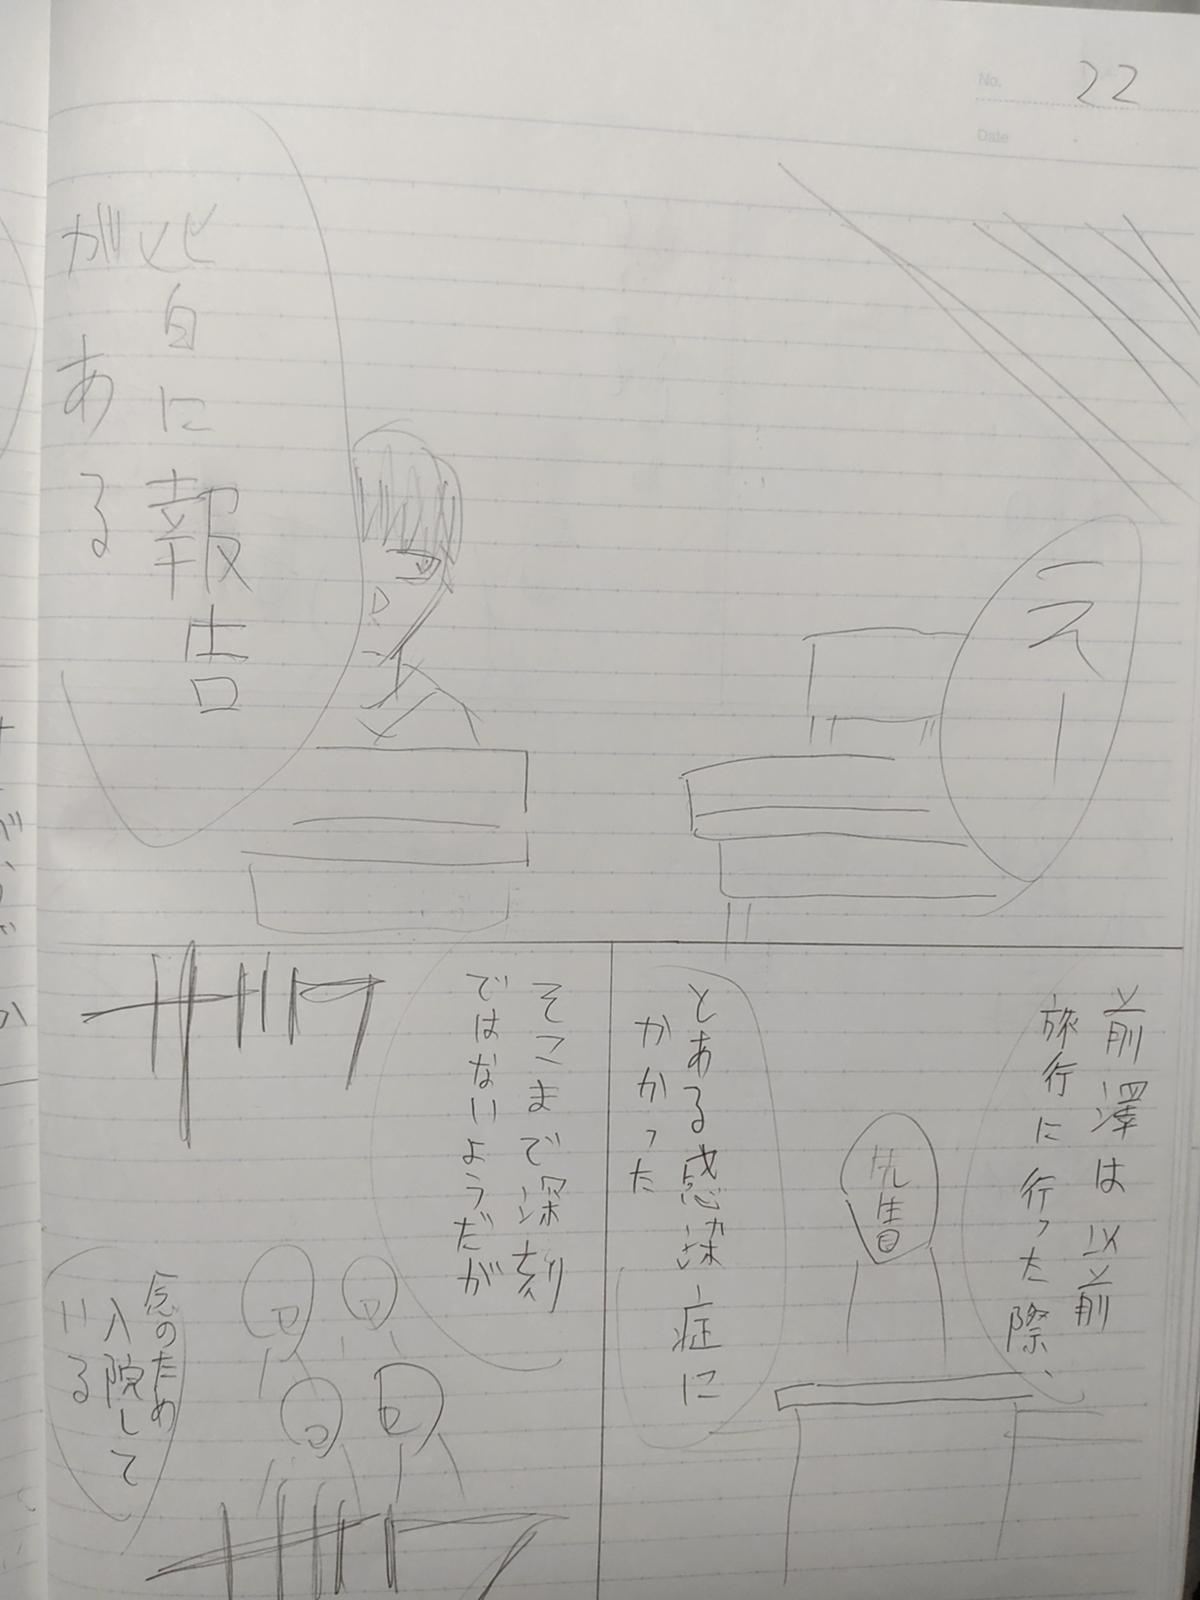 No. 22
Date
えー
皆に報告
がある
前澤は以前
旅行に行った際、
先生
とある感染症に
かかった
そこまで深刻
ではないようだが
念のため
入院して
いる
ザワ
ザワ